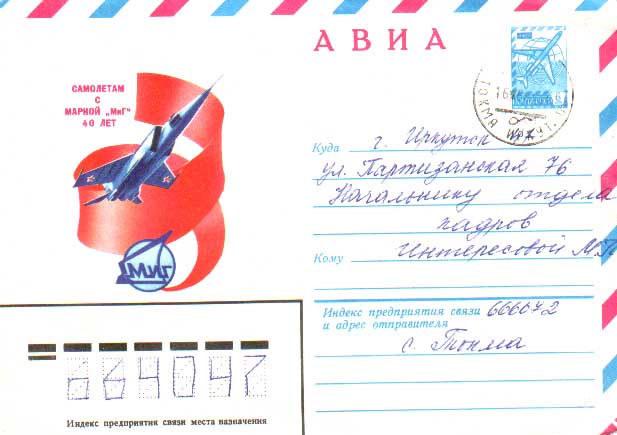 АВИА
САМОЛЕТАМ
С
МАРКОЙ „МиГ“
40 ЛЕТ
МиГ
ТОКМА
Куда г. Иркутск
ул. Партизанская 76
Начальнику отдела
кадров
Кому Интересовой М.
Индекс предприятия связи 666072
и адрес отправителя
с. Токма
664047
Индекс предприятия связи места назначения